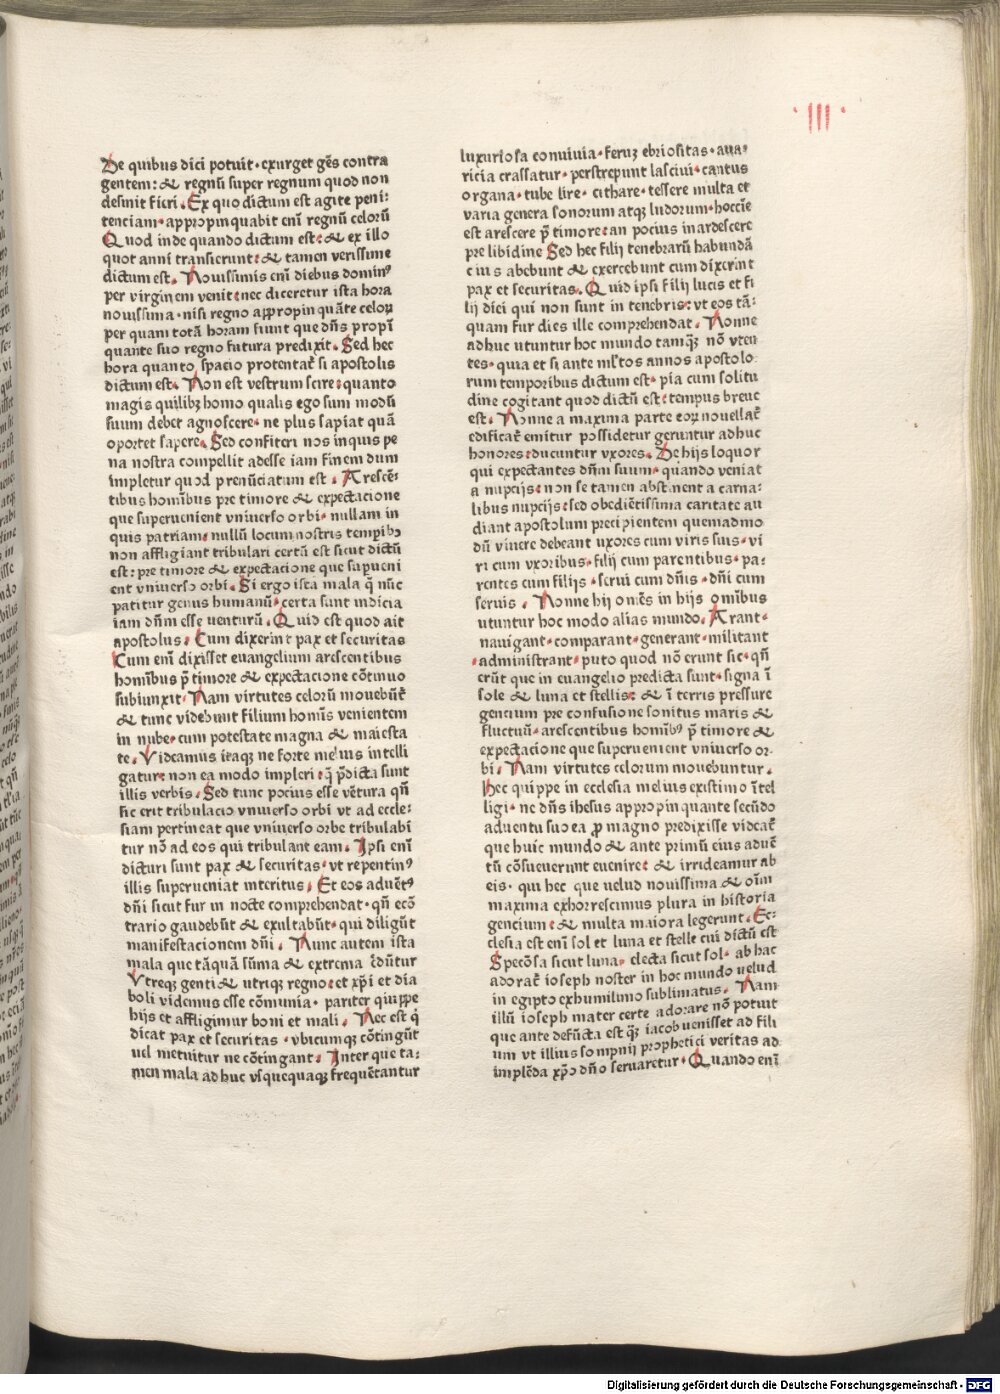 III
De quibus dici potuit· exurget gēs contra
gentem: & regnū super regnum quod non
desinit fieri. Ex quo dictum est agite peni-
tenciam· appropinquabit enī regnū celorū
Quod inde quando dictum est: & ex illo
quot anni transierunt: & tamen verissime
dictum est. Nouissimis enī diebus dominꝰ
per virginem venit: nec diceretur ista hora
nouissima· nisi regno appropinquāte celoꝝ
per quam totā horam fiunt que dn̄s propī
quante suo regno futura predixit. Sed hec
hora quanto spacio protentat̄ si apostolis
dictum est. Non est vestrum scire: quanto
magis quilibꝫ homo qualis ego sum modū
suum debet agnoscere· ne plus sapiat quā
oportet sapere. Sed confiteri nos inquis pe
na nostra compellit adesse iam finem dum
impletur quod prenūciatum est. Arescē-
tibus hominībus pre timore & expectacione
que superuenient vniuerso orbi· nullam in
quis patriam· nullū locum nostris tempibꝰ
non affligiant tribulari certū est sicut dictū
est: pre timore & expectacione que supueni
ent vniuerso orbi. Si ergo ista mala q̄ nūc
patitur genus humanū· certa sunt indicia
iam dn̄m esse uenturū. Quid est quod ait
apostolus. Cum dixerint pax et securitas
Cum enī dixisset euangelium arescentibus
homībus p̄ timore & expectacione cōtinuo
subiunxit. Nam virtutes celorū mouebūt̄
& tunc videbunt filium homīs venientem
in nube· cum potestate magna & maiesta
te. Videamus itaqꝫ ne forte melius intelli
gatur: non ea modo impleri: q̄ p̄dicta sunt
illis verbis. Sed tunc pocius esse vētura qn̄
sic erit tribulacio vniuerso orbi vt ad eccle-
siam pertineat que vniuerso orbe tribulabi
tur nō ad eos qui tribulant eam. Ipsi enī
dicturi sunt pax & securitas· vt repentinꝰ
illis superueniat interitus. Et eos aduētꝰ
dn̄i sicut fur in nocte comprehendat· qn̄ ecō
trario gaudebūt & exultabūt· qui diligūt
manifestacionem dn̄i. Nunc autem ista
mala que tāquā sūma & extrema c̄dūtur
Vtreqꝫ genti & utriqꝫ regno: et xp̄i et dia
boli videmus esse cōmunia· pariter quippe
hijs et affligimur boni et mali. Nec est q̄
dicat pax et securitas· vbicumqꝫ cōtingūt
uel metuitur ne cōtingant. Inter que ta-
men mala adhuc vsquequaqꝫ frequētantur
luxuriosa conuiuia· feruꝫ ebriositas· aua-
ricia crassatur· perstrepunt lasciui· cantus
organa· tube lire· cithare· tessere multa et
varia genera sonorum atqꝫ ludorum· hoccīe
est arescere p̄ timore: an pocius inardescere
pre libidine Sed hec filij tenebrarū habundā
cius abebunt & exercebunt cum dixerint
pax et securitas. Quid ipsi filij lucis et fi
lij diei qui non sunt in tenebris: vt eos tā-
quam fur dies ille comprehendat. Nonne
adhuc utuntur hoc mundo tamqꝫ nō vten
tes· quia et si ante ml̄tos annos apostolo
rum temporibus dictum est· pia cum solitu
dine cogitant quod dictū est: tempus breue
est. Nonne a maxima parte eoꝝ nouellat̄
edificat̄ emitur possidetur geruntur adhuc
honores: ducuntur vxores. De hijs loquor
qui expectantes dn̄m suum· quando veniat
a nupcijs: non se tamen abstinent a carna-
libus nupcijs: sed obediētissima caritate au
diant apostolum precipientem quemadmo
dū viuere debeant uxores cum viris suis· vi
ri cum vxoribus· filij cum parentibus· pa-
rentes cum filijs· serui cum dn̄is· dn̄i cum
seruis. Nonne hij omēs in hijs omībus
utuntur hoc modo alias mundo. Arant·
nauigant· comparant· generant· militant
·administrant· puto quod nō erunt sic· qn̄
erūt que in euangelio predicta sunt· signa ī
sole & luna et stellis: & ī terris pressure
gencium pre confusione sonitus maris &
fluctuū· arescentibus homībꝰ p̄ timore &
expectacione que superuenient vniuerso or-
bi. Nam virtutes celorum mouebuntur.
hec quippe in ecclesia melius existimo ītel
ligi· ne dn̄s ihesus appropinquante secūdo
aduentu suo ea ꝓ magno predixisse videat̄
que huic mundo & ante primū eius aduē
tū cōsueuerunt euenire: & irrideamur ab
eis· qui hec que uelud nouissima & oīm
maxima exhorrescimus plura in historia
gencium: & multa maiora legerunt. Ec-
clesia est enī sol et luna et stelle cui dictū est
Specōsa sicut luna· electa sicut sol· ab hac
adorat̄ ioseph noster in hoc mundo uelud
in egipto ex humilimo sublimatus. Nam
illū ioseph mater certe adorare nō potuit
que ante defūcta est qꝫ iacob uenisset ad fili
um vt illius sompnij prophetici veritas ad
implēda xp̄o dn̄o seruaretur. Quando enī
Digitalisierung gefördert durch die Deutsche Forschungsgemeinschaft - DFG